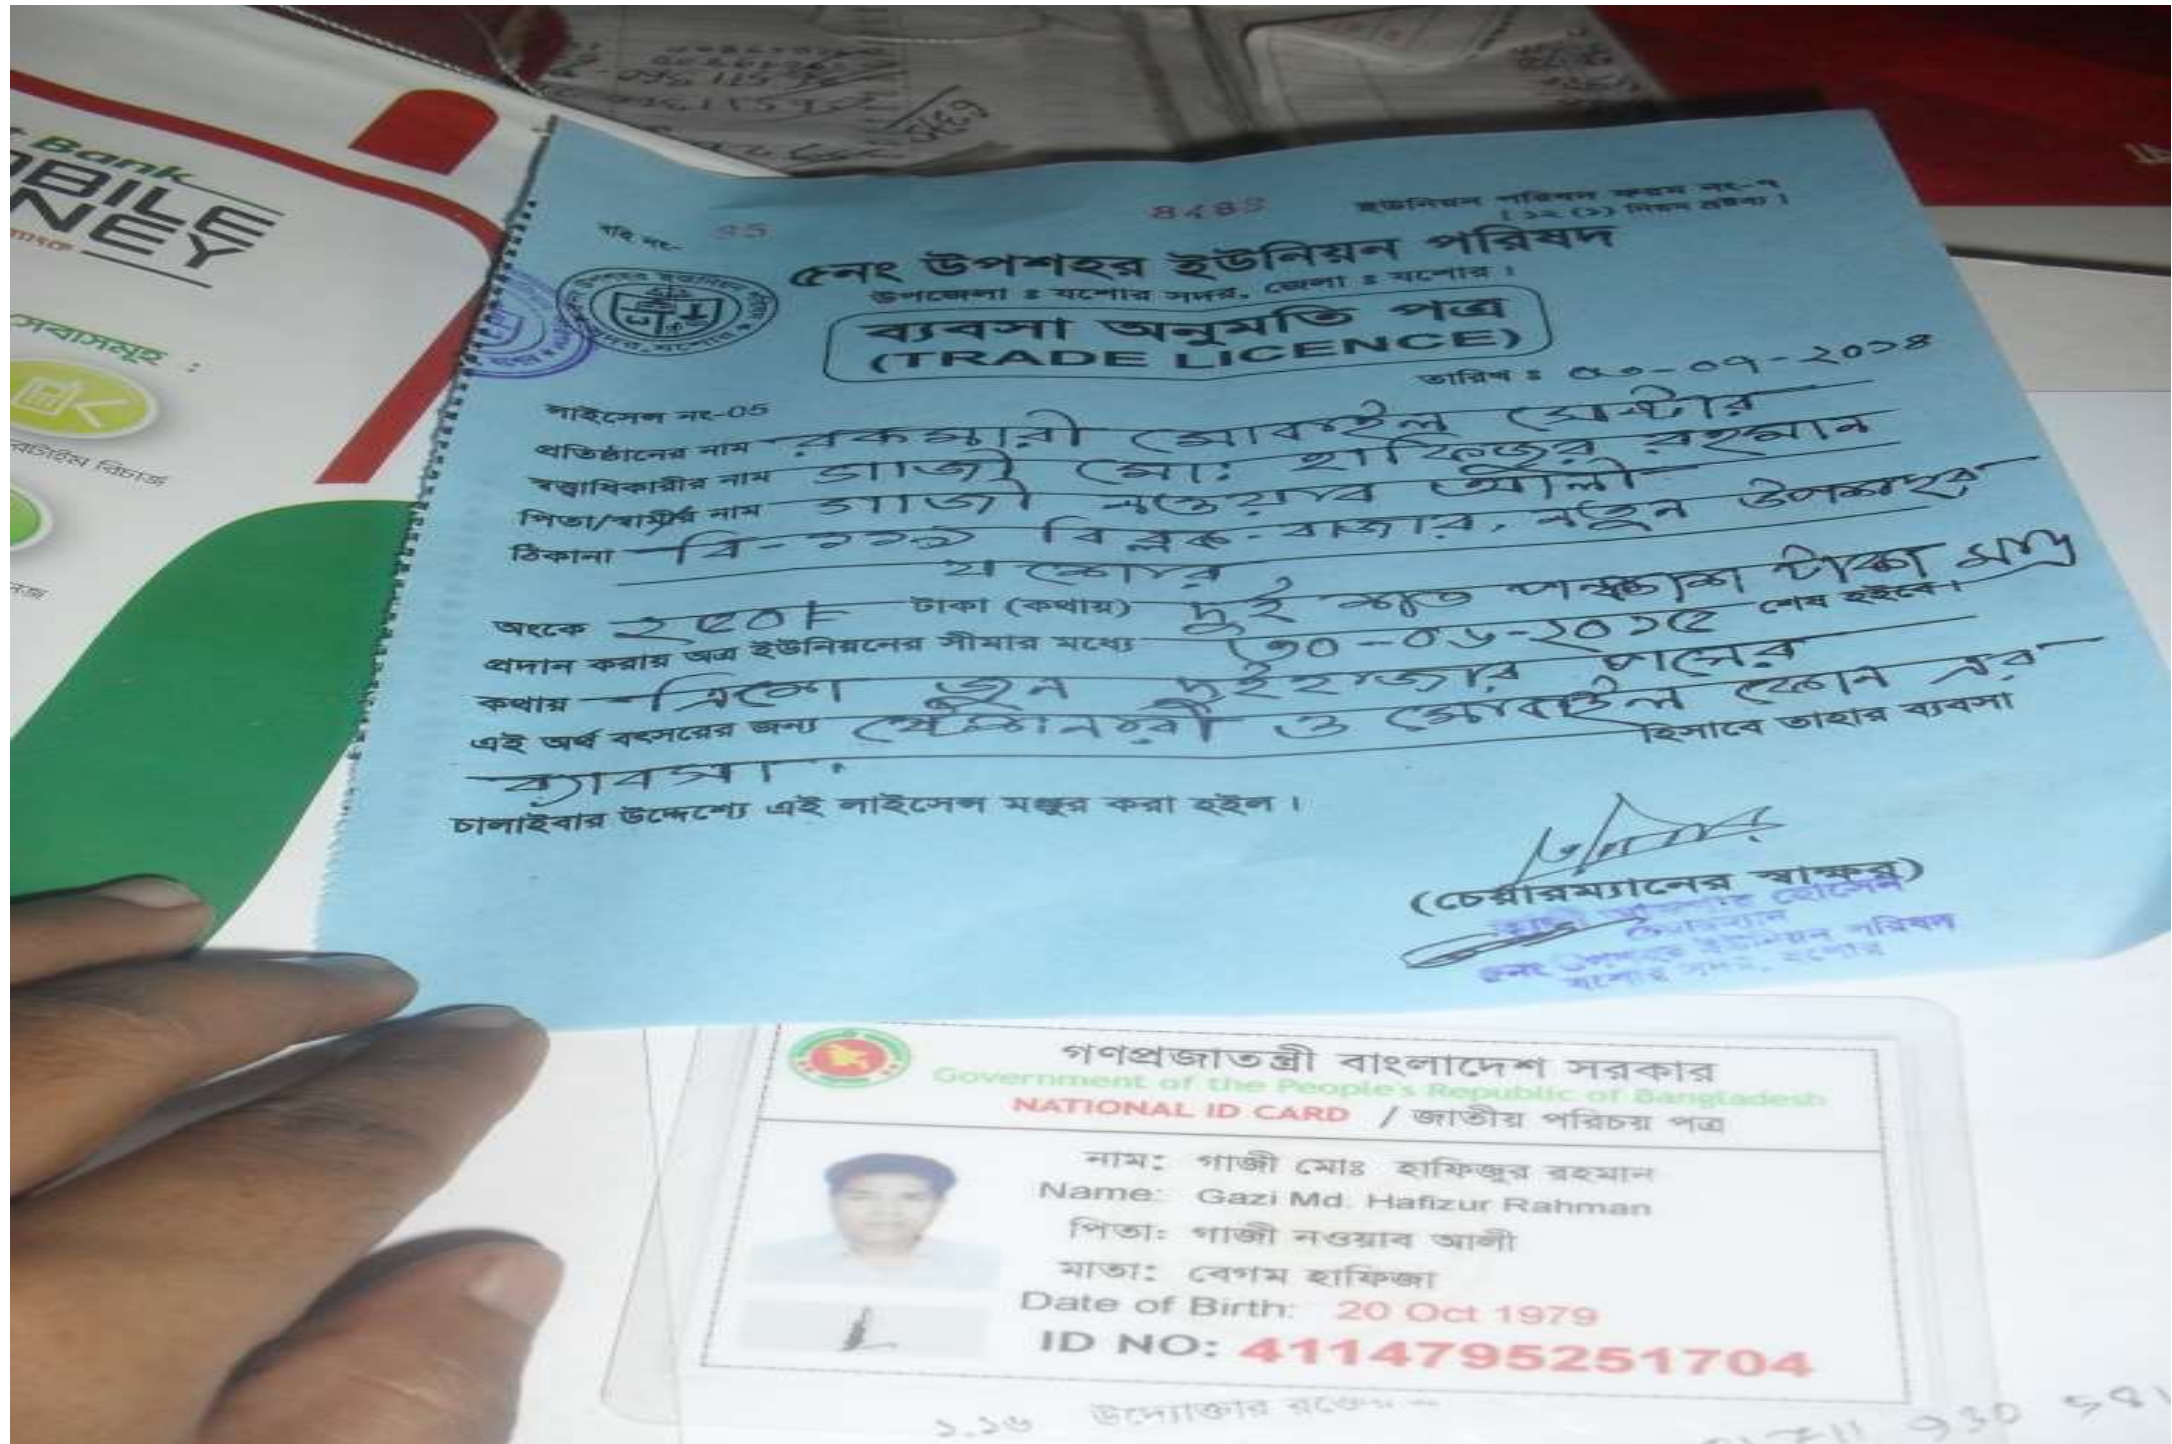 Bank
MOBILE
MONEY
সেবাসমূহ :
বহি নং- 95
ইউনিয়ন পরিষদ ফরম নং-৭
[ ১২ (১) নিয়ম দ্রষ্টব্য ]
৫নং উপশহর ইউনিয়ন পরিষদ
উপজেলা ঃ যশোর সদর, জেলা ঃ যশোর।
ব্যবসা অনুমতি পত্র
(TRADE LICENCE)
তারিখ ঃ ৩০-০৭-২০১৪
লাইসেন্স নং-05
প্রতিষ্ঠানের নাম রকমারী মোবাইল সেন্টার
স্বত্বাধিকারীর নাম গাজী মোঃ হাফিজুর রহমান
পিতা/স্বামীর নাম গাজী নওয়াব আলী
ঠিকানা বি-১১১ বি ব্লক-বাজার, নতুন উপশহর
যশোর
অংকে ২৫০/- টাকা (কথায়) দুই শত পঞ্চাশ টাকা মাত্র
প্রদান করায় অত্র ইউনিয়নের সীমার মধ্যে ৩০-০৬-২০১৫ শেষ হইবে।
কথায় ত্রিশে জুন দুইহাজার পনের
এই অর্থ বৎসরের জন্য ষ্টেশনারী ও মোবাইল ফোন এর
ব্যাবসা হিসাবে তাহার ব্যবসা
চালাইবার উদ্দেশ্যে এই লাইসেন্স মঞ্জুর করা হইল।
(চেয়ারম্যানের স্বাক্ষর)
হোসেন
চেয়ারম্যান
৫নং উপশহর ইউনিয়ন পরিষদ
যশোর সদর, যশোর
গণপ্রজাতন্ত্রী বাংলাদেশ সরকার
Government of the People's Republic of Bangladesh
NATIONAL ID CARD / জাতীয় পরিচয় পত্র
নাম: গাজী মোঃ হাফিজুর রহমান
Name: Gazi Md. Hafizur Rahman
পিতা: গাজী নওয়াব আলী
মাতা: বেগম হাফিজা
Date of Birth: 20 Oct 1979
ID NO: 4114795251704
১.১৬ উদ্যোক্তার